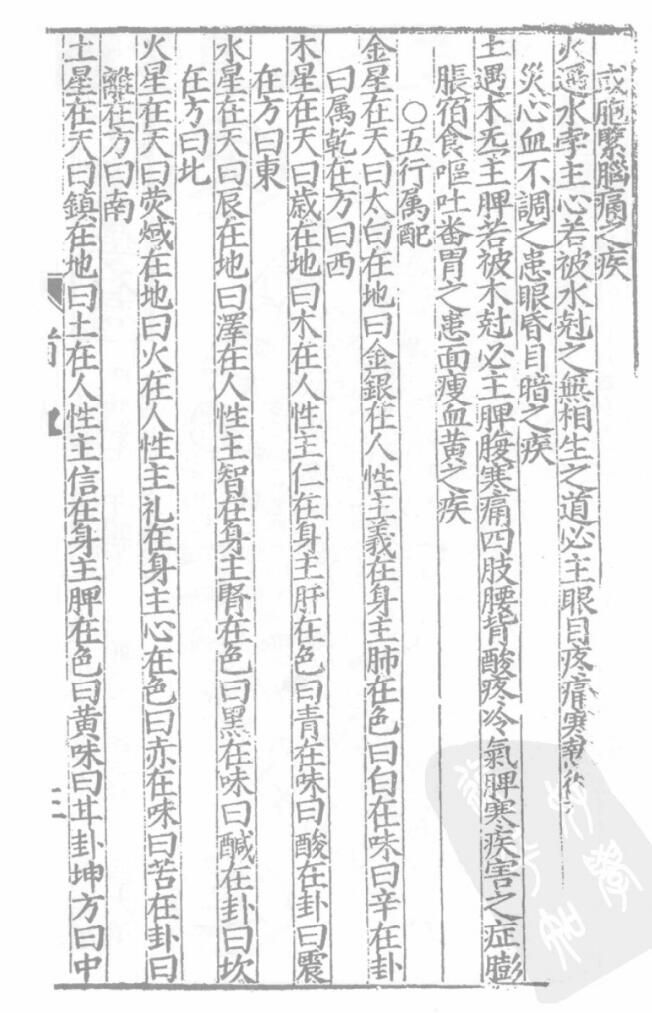 或胞緊腦痛之疾
火遇水孛主心若被水尅之無相生之道必主眼目疼痛寒
災心血不調之患眼昏目暗之疾
土遇木炁主脾若被木尅必主脾腹寒痛四肢腰背酸疼冷氣脾寒疾害之症膨
脹宿食嘔吐畨胃之患面瘦血黄之疾
○五行属配
金星在天曰太白在地曰金銀在人性主義在身主肺在色曰白在味曰辛在卦
曰属乾在方曰西
木星在天曰歳在地曰木在人性主仁在身主肝在色曰青在味曰酸在卦曰震
在方曰東
水星在天曰辰在地曰澤在人性主智在身主腎在色曰黑在味曰鹹在卦曰坎
在方曰北
火星在天曰熒惑在地曰火在人性主礼在身主心在色曰赤在味曰苦在卦曰
離在方曰南
土星在天曰鎮在地曰土在人性主信在身主脾在色曰黄味曰甘卦坤方曰中
三